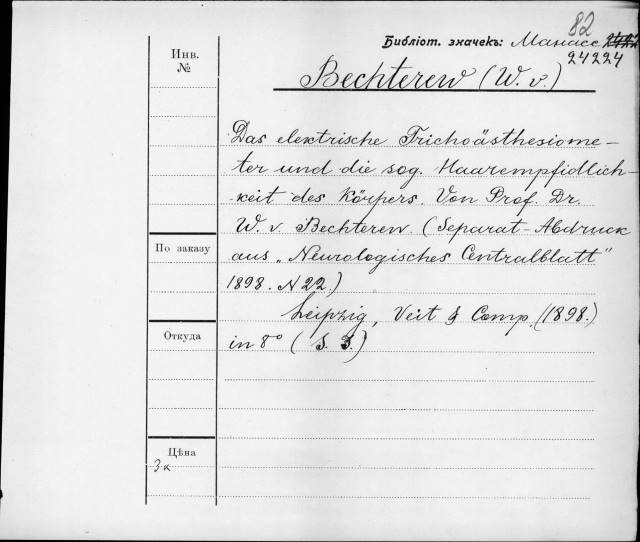 82
Библіот. значекъ: Манасс
24224
Инв.
№
Bechterew (W. v.)
Das elektrische Trichoästhesiome-
ter und die sog. Haarempfidlich-
keit des Körpers. Von Prof. Dr.
W. v. Bechterew. (Separat-Abdruck
По заказу
aus „Neurologisches Centralblatt"
1898. N 22.)
Leipzig, Veit & Comp. (1898.)
Откуда
in 8° (S. 3.)
Цѣна
3 к